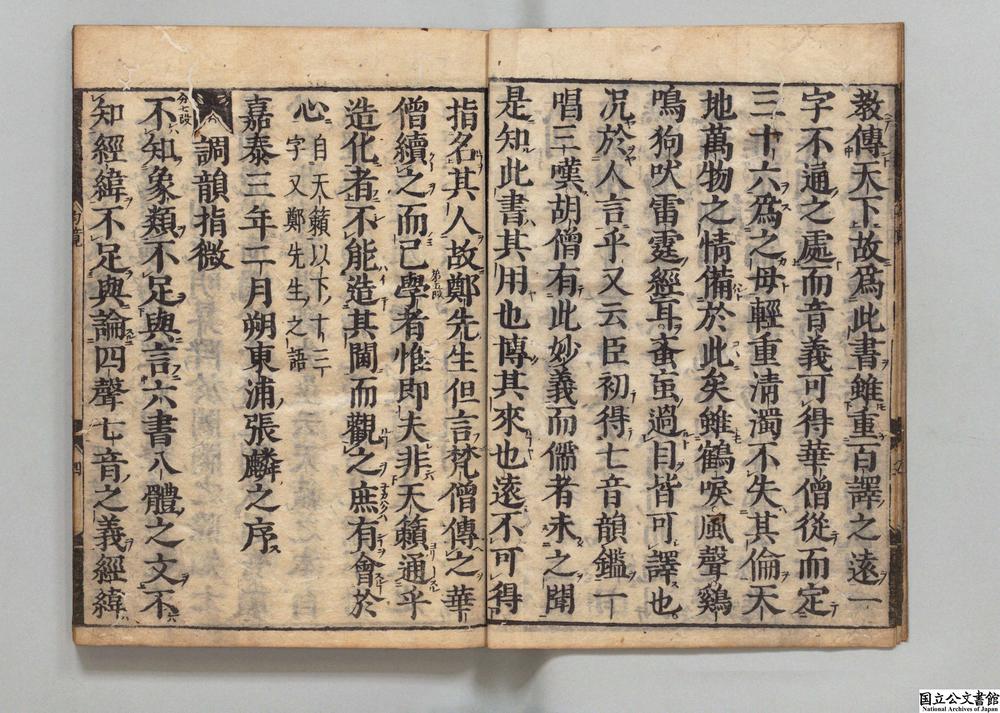 教傳天下故爲此書雖重百譯之遠一
字不通之處而音義可得華僧從而定
三十六爲之母輕重清濁不失其倫天
地萬物之情備於此矣雖鶴唳風聲鷄
鳴狗吠雷霆經耳蚉䖟過目皆可譯也
况於人言乎又云臣初得七音韻鑑一
唱三嘆胡僧有此妙義而儒者未之聞
是知此書其用也博其來也遠不可得
指名其人故鄭先生但言梵僧傳之華
僧續之而已學者惟即夫非天籟通乎
造化者不能造其閫而觀之庶有會於
心
自天籟以下十二
字又鄭先生之語
嘉泰三年二月朔東浦張麟之序
調韻指微
不知象類不足與言六書八體之文不
知經緯不足與論四聲七音之義經緯
四
国立公文書館
National Archives of Japan